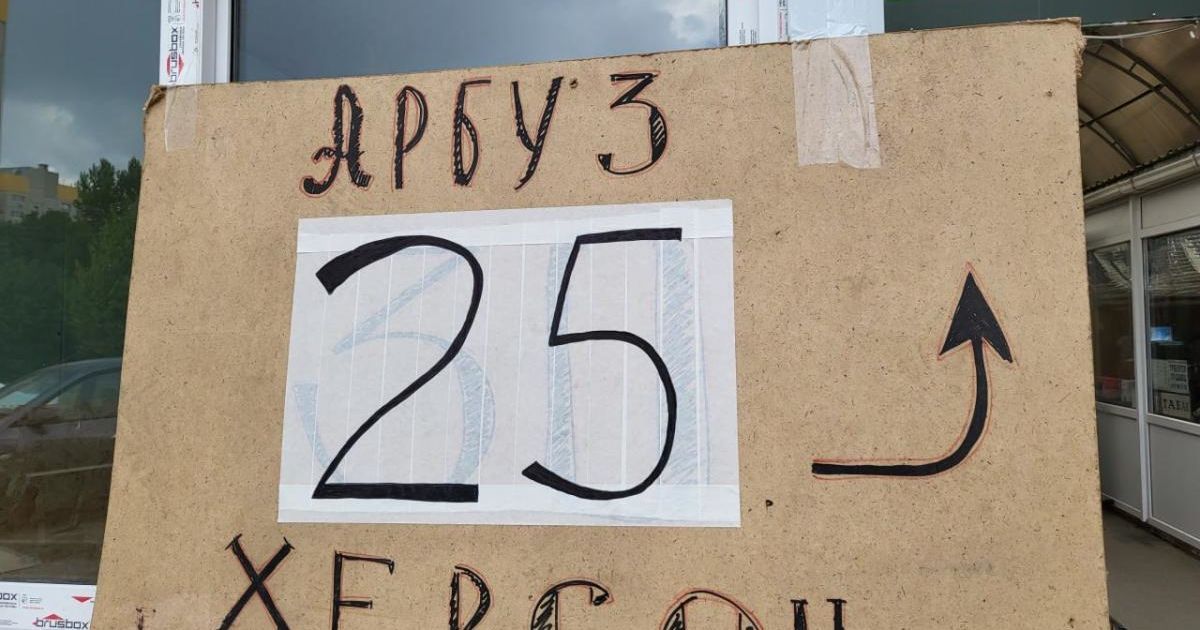 brusbox
АРБУЗ
25
ХЕРСОН
brusbox